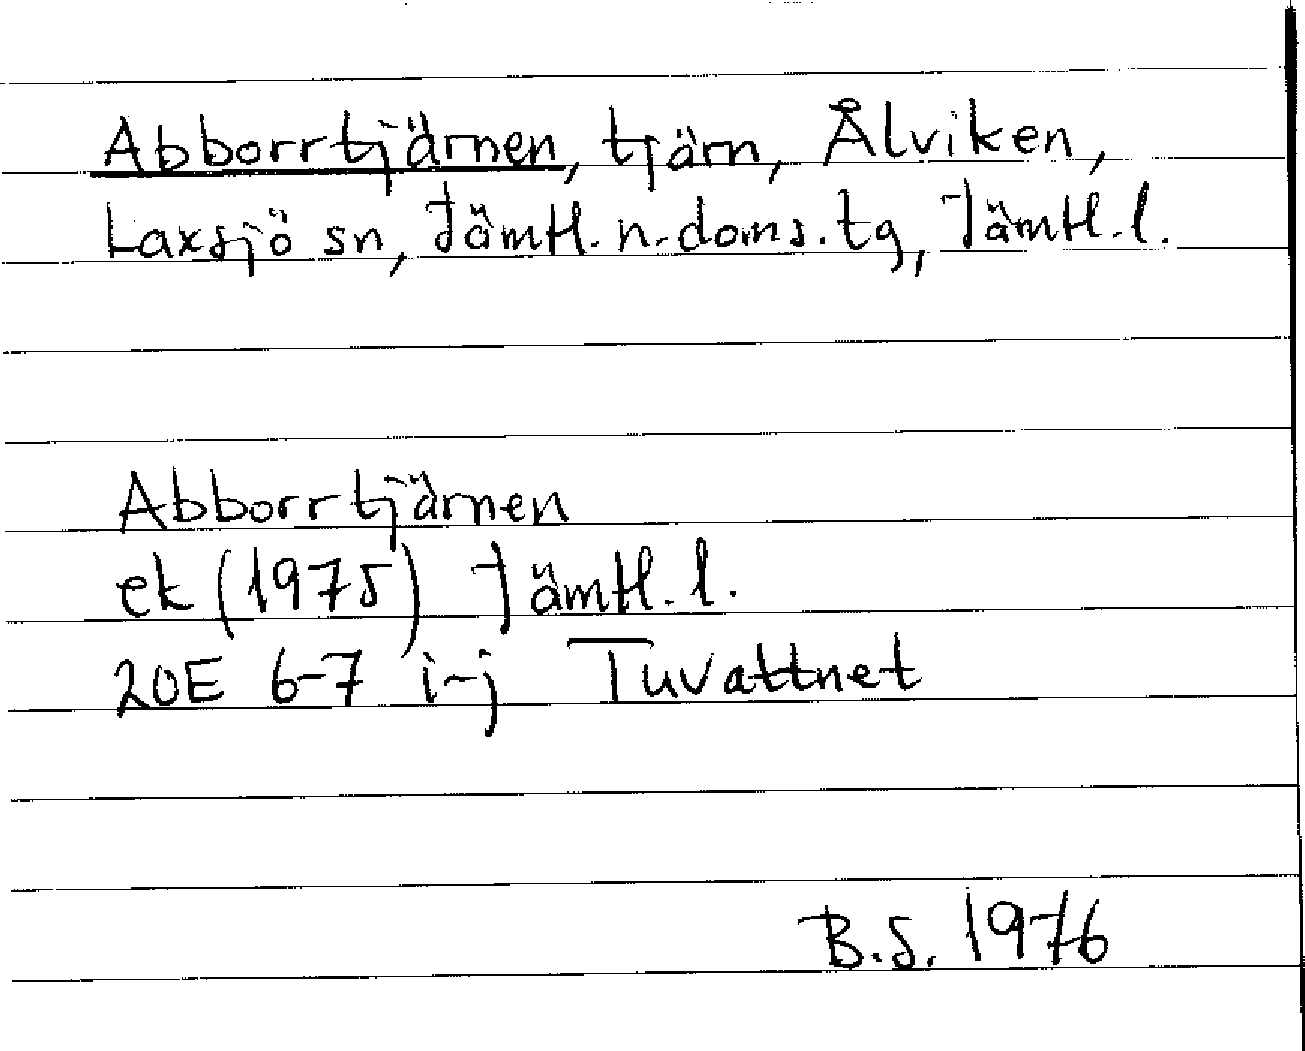 Abborrtjärnen, tjärn, Ålviken,
Laxsjö sn, Jämtl. n. doms. tg, Jämtl. l.
Abborrtjärnen
ek (1975) Jämtl. l.
20E 6-7 i-j Tuvattnet
B.S. 1976